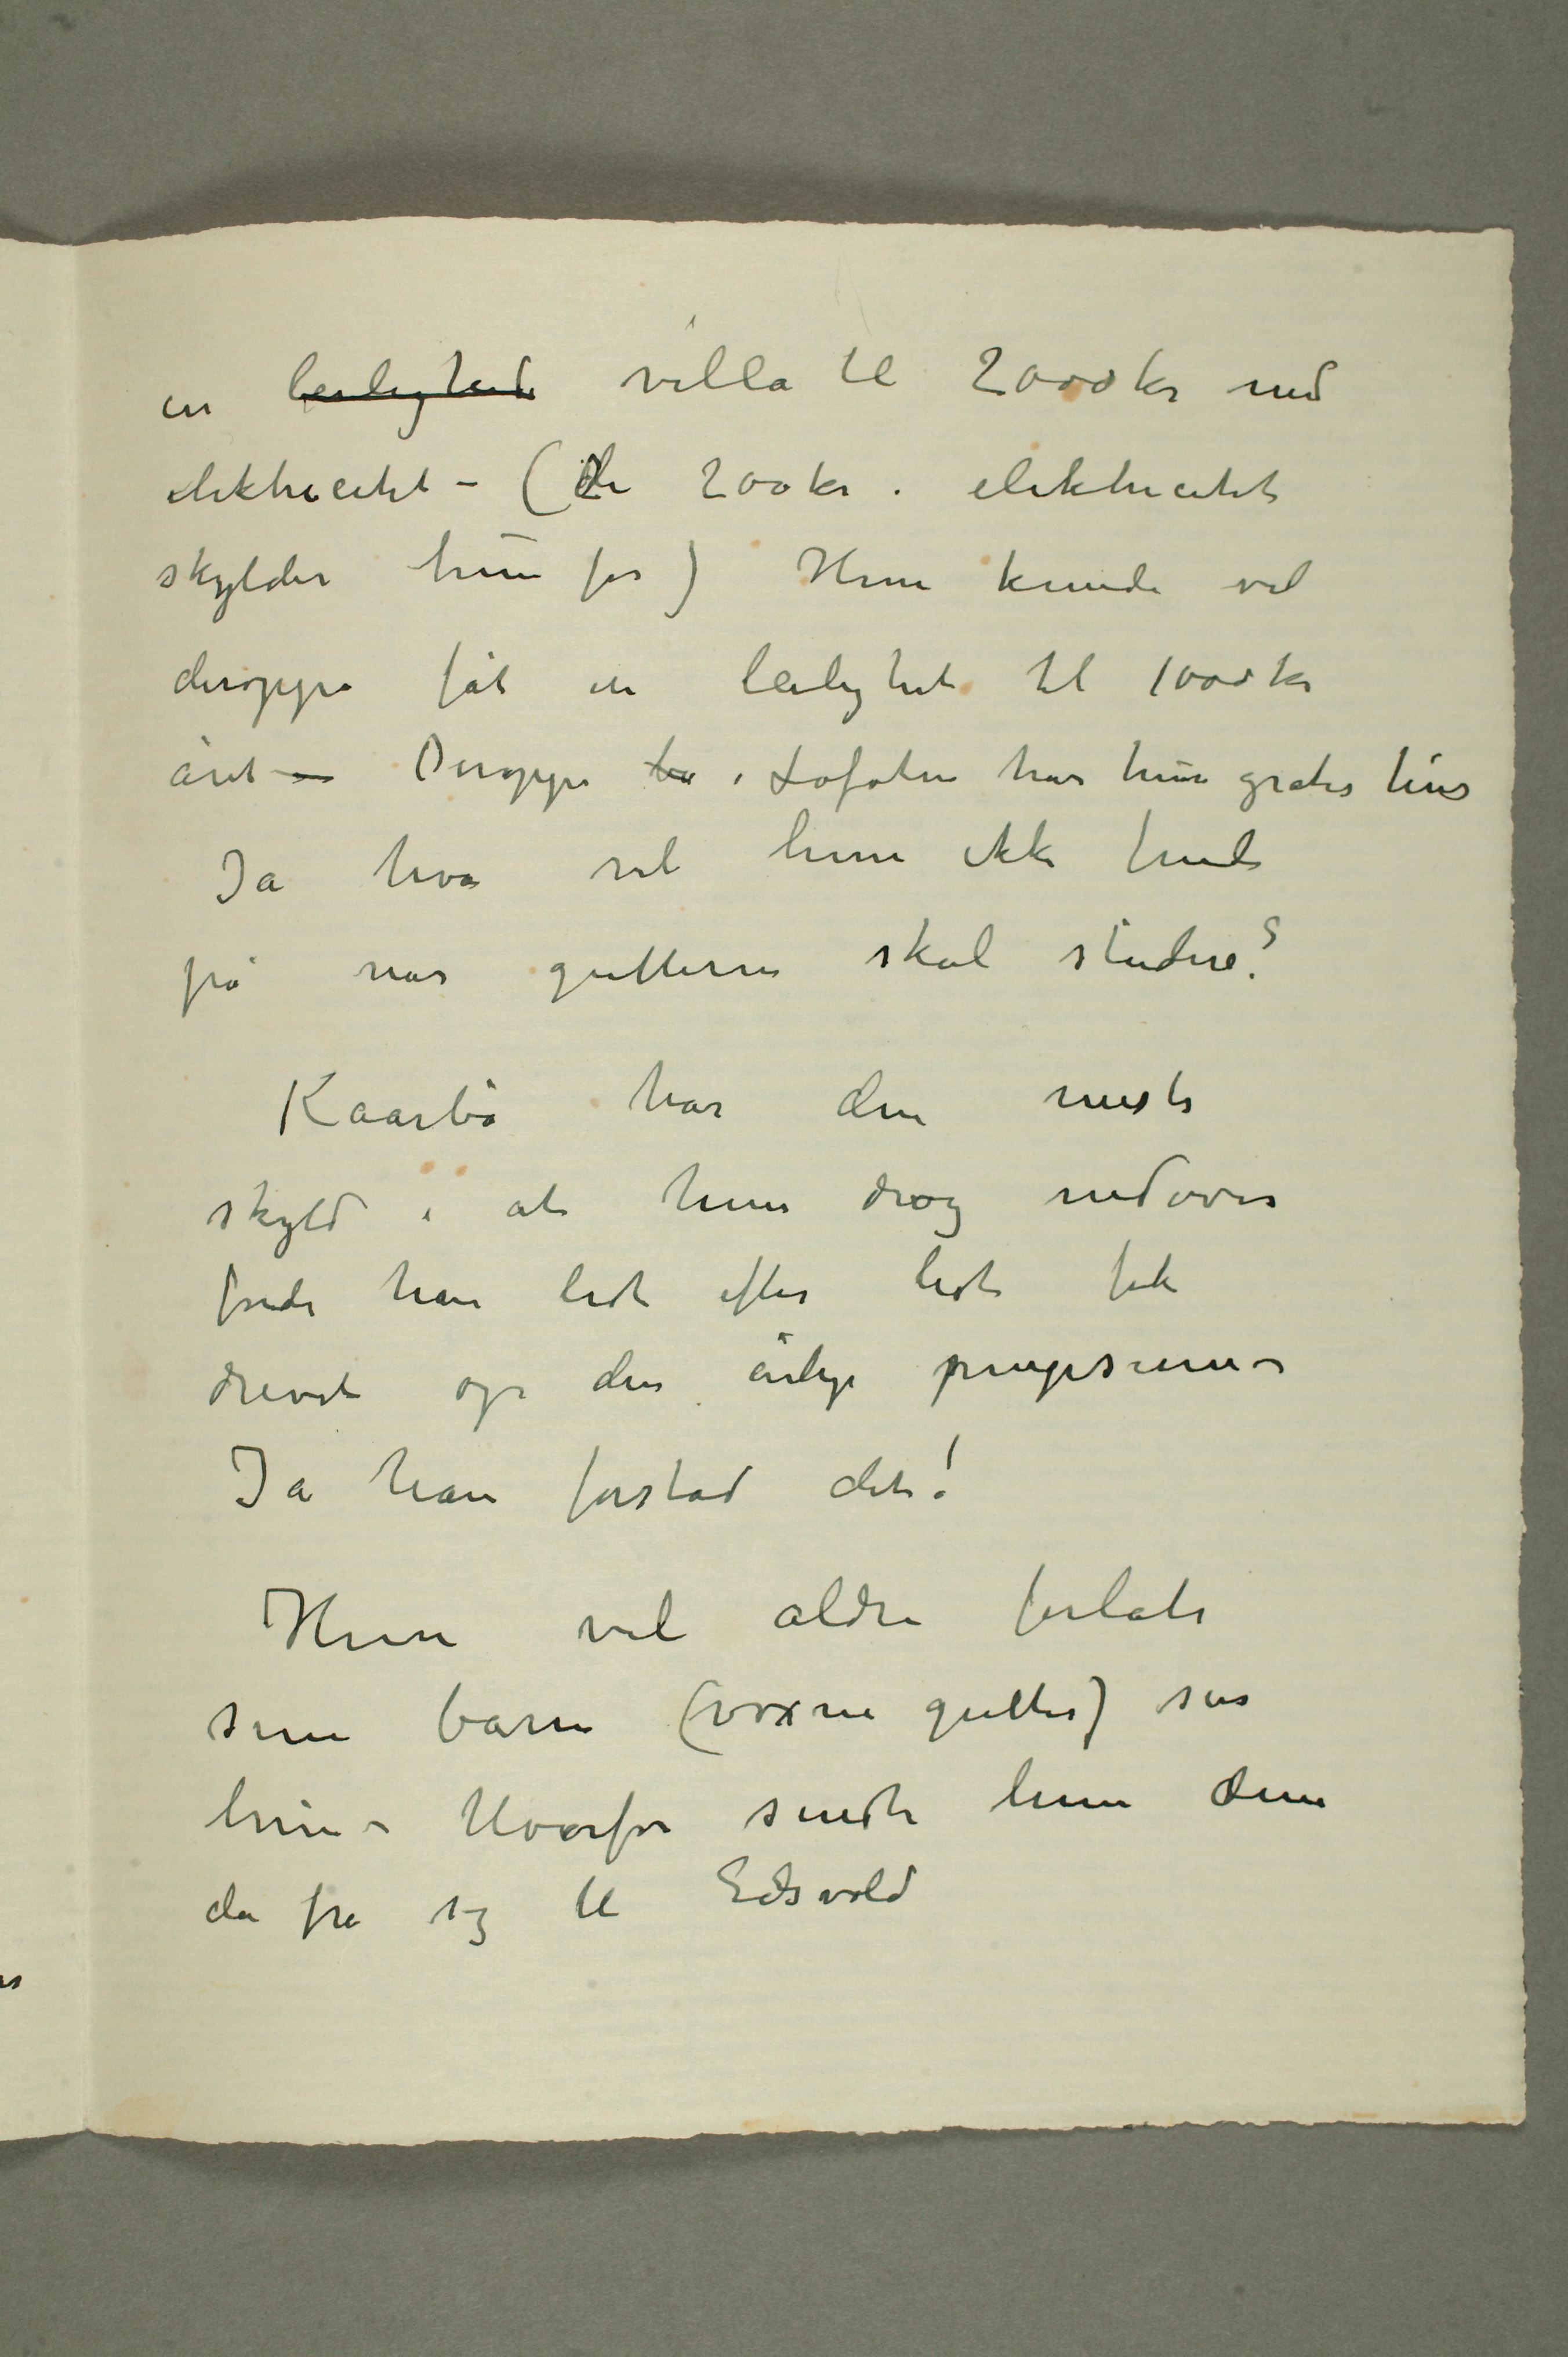 en leilighed villa til 2000 kr med
elektricitet – (de 200 kr i elektricitet
skylder hun for) Hun kunde vel
deroppe fåt en leilighet til 1000 kr
året – Deroppe bo i Lofoten har hun gratis hus
Ja hva vil hun ikke finde
på når gutterne skal studere?
Kaarbö har den meste
skyld i at hun drog nedover
fordi han lidt efter lidt fik
drevet op den årlige pengesum –
Ja han forstod det!
Hun vil aldri forlate
sine barn (voxne gutter) sier
hun – Hvorfor sendte hun dem
da fra sig til Eidsvold